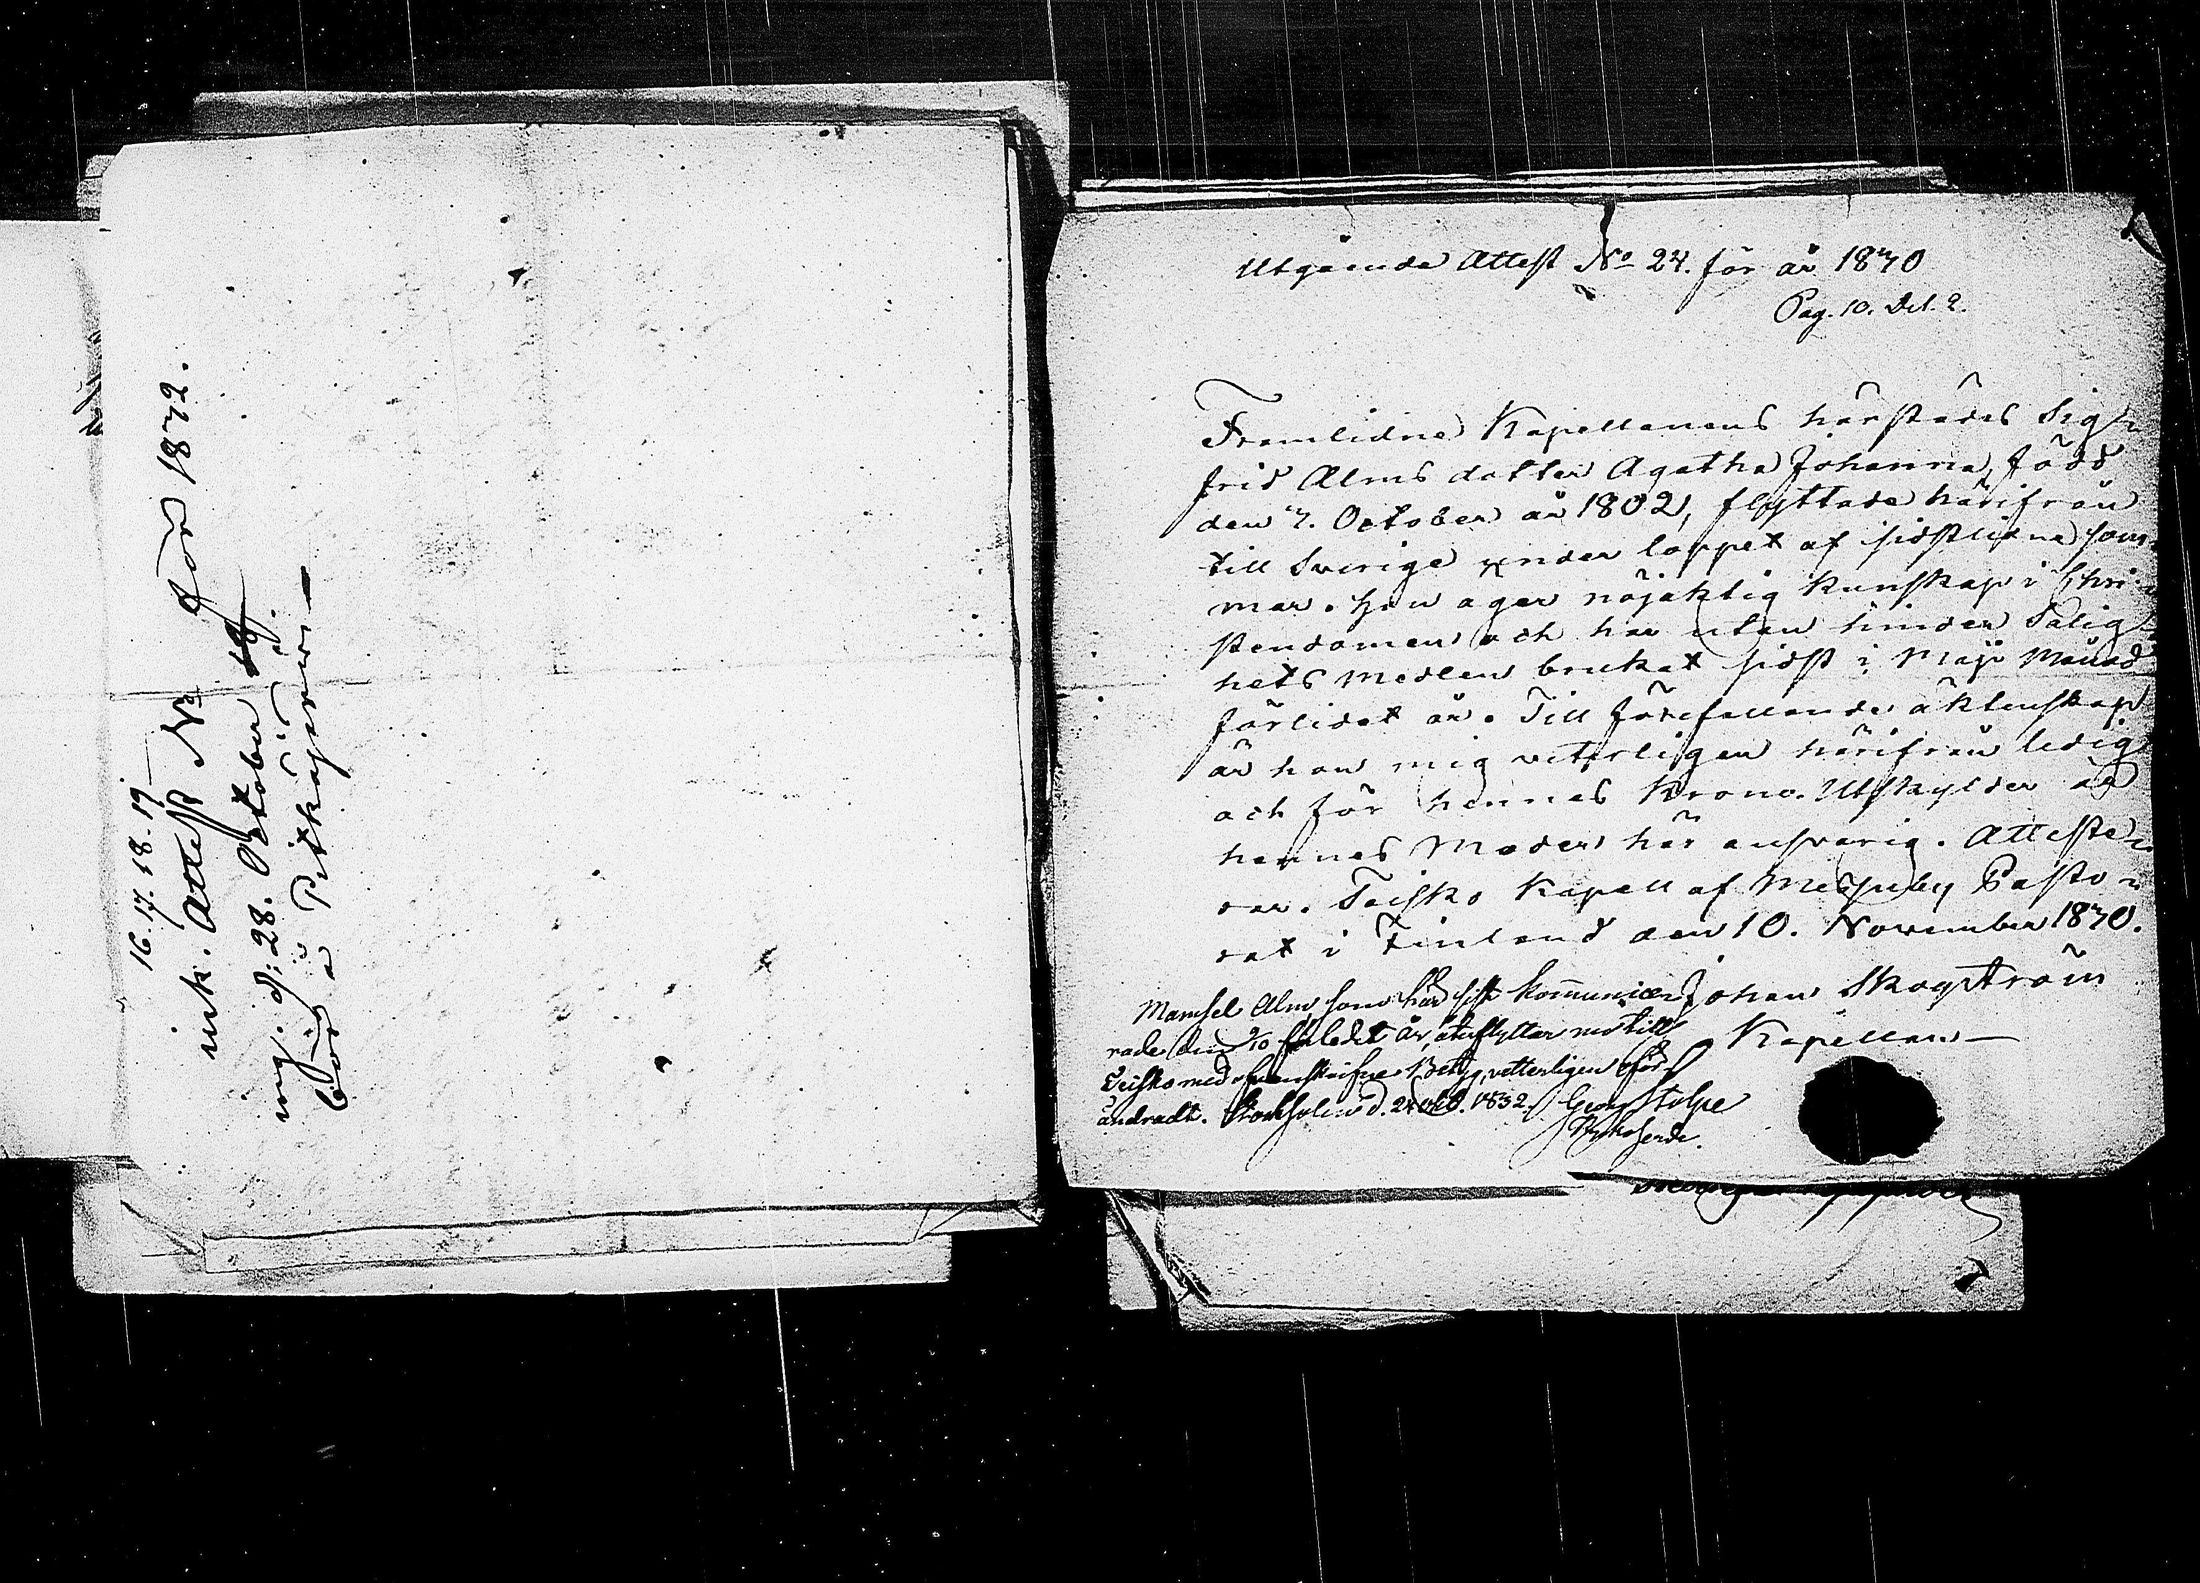 16. 17. 18. 19
ink. Attest No för 1832.
ing. d: 28. October
bor på Pitkäjerwi
Utgående Attest No 24. för år 1830
Pag. 10. Del. 2.
Framlidne Kapellanens härstädes Sig-
frid Alms dotter Agatha Johanna, född
den 7. October år 1802, flyttade härifrån
till Sverige under loppet af sidstlidne som-
mar. Hon äger nöjaktig kunskap i Chri-
stendomen och har utan hinder Salig-
hets Medlen brukat sidst i Maji Månad
förlidet år. Till förefallande äktenskap
är hon mig veterligen härifrån ledig
och för hennes Krono-Utskylder är
hennes Moder här ansvarig. Atteste-
rar. Teisko Kapell af Messuby Pasto-
rat i Finland den 10. November 1830.
Johan Skogström
Kapellan
Mamsel Alm, som här sist kommunice-
rade den 9/10 förledet år, återflyttar nu till
Teisko med ofvanskrifne Betyg, vetterligen oför-
ändradt. Stockholm d. 24 Okt. 1832.
Georg Stolpe
Kyrkoherde.